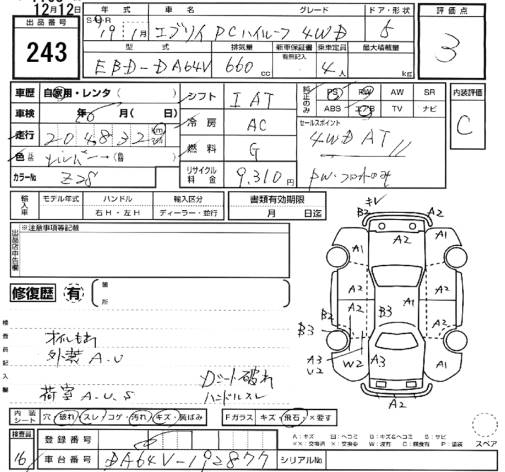 12月12日
出品番号
243
年式 車名 グレード ドア・形状
S・H・R 19年1月 エブリイ PCハイルーフ 4WD 5
型式 排気量 新車保証書 乗車定員 最大積載量
EBD-DA64V 660cc 有無記入 4人 kg
評価点
3
車歴 自家用・レンタ( )
車検 年 月( 日)
走行 204832
色
カラーNo Z28
シフト IAT
冷房 AC
燃料 G
リサイクル料金 9,310円
純正のみ PS PW AW SR
ABS エアB TV ナビ
セールスポイント
4WD AT
PW・フロントのみ
内装評価
C
輸入車 モデル年式 ハンドル 輸入区分
右H・左H ディーラー・並行
書類有効期限
月 日迄
出品店申告欄
※注意事項等記載
修復歴 有 箇所
検査員記入欄
オイルもれ
外装A.U
荷室A.U.S
Dシート破れ
ハンドルスレ
キレ
B2 A2
A1 A1
A2 A2
A2 A1 A2
B2 B3
B3
A3 U2 W2 A3 A1
A2
内装シート 穴 破れ スレ コゲ 汚れ キズ 腐ばみ
Fガラス キズ 飛石 ×要す
A:キズ U:ヘコミ B:キズ&ヘコミ S:サビ
××:交換済 X:要交換 W:波有 C:腐食有 P:塗装
スペア
検査員
16
登録番号
車台番号 DA64V-192877 シリアルNo